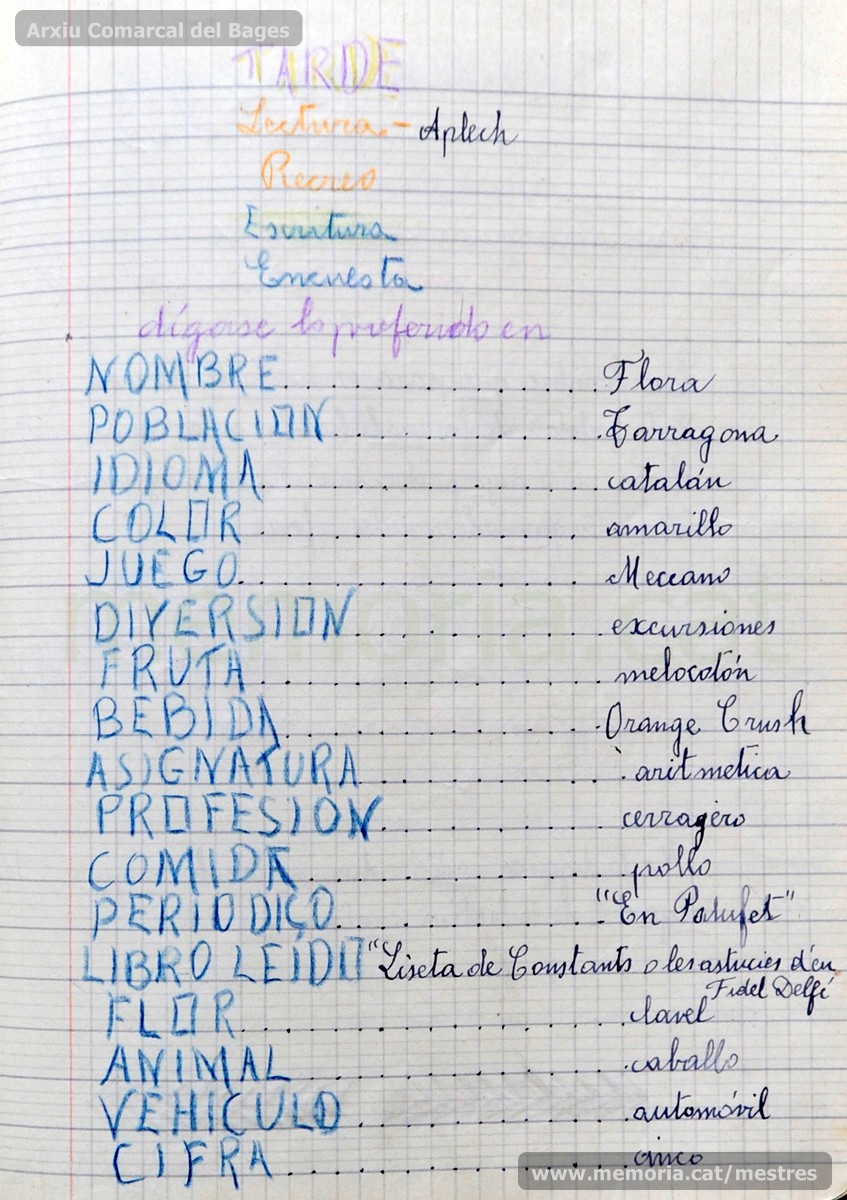 Arxiu Comarcal del Bages
TARDE
Lectura - Aplech
Recreo
Escritura
Encuesta
dígase lo preferido en
NOMBRE..............Flora
POBLACION.............Tarragona
IDIOMA................catalán
COLOR...............amarillo
JUEGO...............Meccano
DIVERSION............excursiones
FRUTA...............melocotón
BEBIDA...............Orange Crush
ASIGNATURA..........aritmetica
PROFESION...........cerragero
COMIDA..............pollo
PERIODICO..........."En Patufet"
LIBRO LEIDO "Liseta de Constants o les astucies d'en
Fidel Delfí
FLOR................clavel
ANIMAL..............caballo
VEHICULO............automóvil
CIFRA...............cinco
www.memoria.cat/mestres